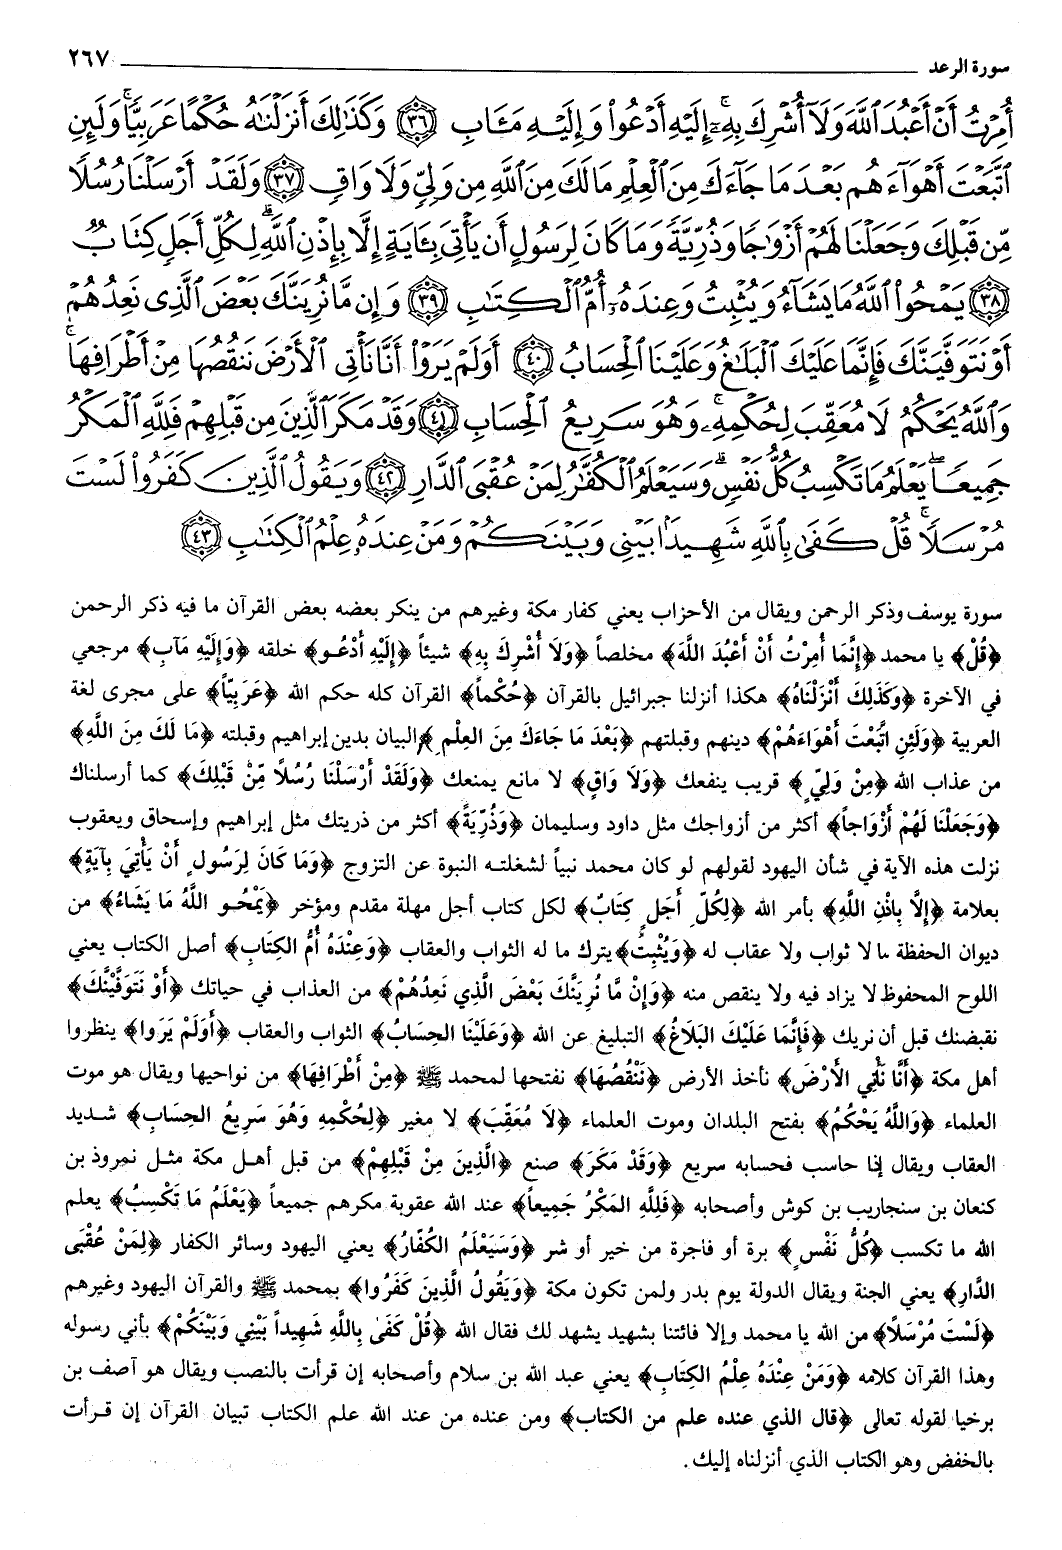 سورة الرعد ٢٦٧
أُمِرْتُ أَنْ أَعْبُدَ ٱللَّهَ وَلَآ أُشْرِكَ بِهِۦٓ ۚ إِلَيْهِ أَدْعُوا۟ وَإِلَيْهِ مَـَٔابِ ﴿٣٦﴾ وَكَذَٰلِكَ أَنزَلْنَٰهُ حُكْمًا عَرَبِيًّا ۚ وَلَئِنِ
ٱتَّبَعْتَ أَهْوَآءَهُم بَعْدَ مَا جَآءَكَ مِنَ ٱلْعِلْمِ مَالَكَ مِنَ ٱللَّهِ مِن وَلِىٍّ وَلَا وَاقٍ ﴿٣٧﴾ وَلَقَدْ أَرْسَلْنَا رُسُلًا
مِّن قَبْلِكَ وَجَعَلْنَا لَهُمْ أَزْوَٰجًا وَذُرِّيَّةً ۚ وَمَا كَانَ لِرَسُولٍ أَن يَأْتِىَ بِـَٔايَةٍ إِلَّا بِإِذْنِ ٱللَّهِ ۗ لِكُلِّ أَجَلٍ كِتَابٌ
﴿٣٨﴾ يَمْحُوا۟ ٱللَّهُ مَا يَشَآءُ وَيُثْبِتُ ۖ وَعِندَهُۥٓ أُمُّ ٱلْكِتَٰبِ ﴿٣٩﴾ وَإِن مَّا نُرِيَنَّكَ بَعْضَ ٱلَّذِى نَعِدُهُمْ
أَوْ نَتَوَفَّيَنَّكَ فَإِنَّمَا عَلَيْكَ ٱلْبَلَٰغُ وَعَلَيْنَا ٱلْحِسَابُ ﴿٤٠﴾ أَوَلَمْ يَرَوْا۟ أَنَّا نَأْتِى ٱلْأَرْضَ نَنقُصُهَا مِنْ أَطْرَافِهَا ۚ
وَٱللَّهُ يَحْكُمُ لَا مُعَقِّبَ لِحُكْمِهِۦ ۚ وَهُوَ سَرِيعُ ٱلْحِسَابِ ﴿٤١﴾ وَقَدْ مَكَرَ ٱلَّذِينَ مِن قَبْلِهِمْ فَلِلَّهِ ٱلْمَكْرُ
جَمِيعًا ۖ يَعْلَمُ مَا تَكْسِبُ كُلُّ نَفْسٍ ۗ وَسَيَعْلَمُ ٱلْكُفَّٰرُ لِمَنْ عُقْبَى ٱلدَّارِ ﴿٤٢﴾ وَيَقُولُ ٱلَّذِينَ كَفَرُوا۟ لَسْتَ
مُرْسَلًا ۚ قُلْ كَفَىٰ بِٱللَّهِ شَهِيدًۢا بَيْنِى وَبَيْنَكُمْ وَمَنْ عِندَهُۥ عِلْمُ ٱلْكِتَٰبِ ﴿٤٣﴾
سورة يوسف وذكر الرحمن ويقال من الأحزاب يعني كفار مكة وغيرهم من ينكر بعضه بعض القرآن ما فيه ذكر الرحمن
﴿قُلْ﴾ يا محمد ﴿إِنَّمَا أُمِرْتُ أَنْ أَعْبُدَ اللَّهَ﴾ مخلصاً ﴿وَلَا أُشْرِكَ بِهِ﴾ شيئاً ﴿إِلَيْهِ أَدْعُـو﴾ خلقه ﴿وَإِلَيْهِ مَآبِ﴾ مرجعي
في الآخرة ﴿وَكَذَلِكَ أَنْزَلْنَاهُ﴾ هكذا أنزلنا جبرائيل بالقرآن ﴿حُكْماً﴾ القرآن كله حكم الله ﴿عَرَبِيّاً﴾ على مجرى لغة
العربية ﴿وَلَئِنِ اتَّبَعْتَ أَهْوَاءَهُمْ﴾ دينهم وقبلتهم ﴿بَعْدَ مَا جَاءَكَ مِنَ العِلْمِ﴾ البيان بدين إبراهيم وقبلته ﴿مَا لَكَ مِنَ اللَّهِ﴾
من عذاب الله ﴿مِنْ وَلِيٍّ﴾ قريب ينفعك ﴿وَلَا وَاقٍ﴾ لا مانع يمنعك ﴿وَلَقَدْ أَرْسَلْنَا رُسُلاً مِّنْ قَبْلِكَ﴾ كما أرسلناك
﴿وَجَعَلْنَا لَهُمْ أَزْوَاجاً﴾ أكثر من أزواجك مثل داود وسليمان ﴿وَذُرِّيَةً﴾ أكثر من ذريتك مثل إبراهيم وإسحاق ويعقوب
نزلت هذه الآية في شأن اليهود لقولهم لو كان محمد نبياً لشغلته النبوة عن التزوج ﴿وَمَا كَانَ لِرَسُولٍ أَنْ يَأْتِيَ بِآيَةٍ﴾
بعلامة ﴿إِلَّا بِإذْنِ اللَّهِ﴾ بأمر الله ﴿لِكُلِّ أَجَلٍ كِتَابٌ﴾ لكل كتاب أجل مهلة مقدم ومؤخر ﴿يَمْحُـو اللَّهُ مَا يَشَاءُ﴾ من
ديوان الحفظة ما لا ثواب ولا عقاب له ﴿وَيُثْبِتُ﴾ يترك ما له الثواب والعقاب ﴿وَعِنْدَهُ أُمُّ الكِتَابِ﴾ أصل الكتاب يعني
اللوح المحفوظ لا يزاد فيه ولا ينقص منه ﴿وَإِنْ مَّا نُرِيَنَّكَ بَعْضَ الَّذِي نَعِدُهُمْ﴾ من العذاب في حياتك ﴿أَوْ نَتَوفَّيَنَّكَ﴾
نقبضنك قبل أن نريك ﴿فَإِنَّمَا عَلَيْكَ البَلَاغُ﴾ التبليغ عن الله ﴿وَعَلَيْنَا الحِسَابُ﴾ الثواب والعقاب ﴿أَوَلَمْ يَرَوا﴾ ينظروا
أهل مكة ﴿أَنَّا نَأْتِي الأَرْضَ﴾ نأخذ الأرض ﴿نَنْقُصُهَا﴾ نفتحها لمحمد ﷺ ﴿مِنْ أَطْرَافِهَا﴾ من نواحيها ويقال هو موت
العلماء ﴿وَاللَّهُ يَحْكُمُ﴾ بفتح البلدان وموت العلماء ﴿لَا مُعَقِّبَ﴾ لا مغير ﴿لِحُكْمِهِ وَهُوَ سَرِيعُ الحِسَابِ﴾ شديد
العقاب ويقال إذا حاسب فحسابه سريع ﴿وَقَدْ مَكَرَ﴾ صنع ﴿الَّذِينَ مِنْ قَبْلِهِمْ﴾ من قبل أهل مكة مثل نمروذ بن
كنعان بن سنجاريب بن كوش وأصحابه ﴿فَلِلَّهِ المَكْرُ جَمِيعاً﴾ عند الله عقوبة مكرهم جميعاً ﴿يَعْلَمُ مَا تَكْسِبُ﴾ يعلم
الله ما تكسب ﴿كُلُّ نَفْسٍ﴾ برة أو فاجرة من خير أو شر ﴿وَسَيَعْلَمُ الكُفّارُ﴾ يعني اليهود وسائر الكفار ﴿لِمَنْ عُقْبَى
الدَّارِ﴾ يعني الجنة ويقال الدولة يوم بدر ولمن تكون مكة ﴿وَيَقُولُ الَّذِينَ كَفَرُوا﴾ بمحمد ﷺ والقرآن اليهود وغيرهم
﴿لَسْتَ مُرْسَلاً﴾ من الله يا محمد وإلا فائتنا بشهيد يشهد لك فقال الله ﴿قُلْ كَفَى بِاللَّهِ شَهِيداً بَيْنِي وَبَيْنَكُمْ﴾ بأني رسوله
وهذا القرآن كلامه ﴿وَمَنْ عِنْدَهُ عِلْمُ الكِتَابِ﴾ يعني عبد الله بن سلام وأصحابه إن قرأت بالنصب ويقال هو آصف بن
برخيا لقوله تعالى ﴿قال الذي عنده علم من الكتاب﴾ ومن عنده من عند الله علم الكتاب تبيان القرآن إن قرأت
بالخفض وهو الكتاب الذي أنزلناه إليك.